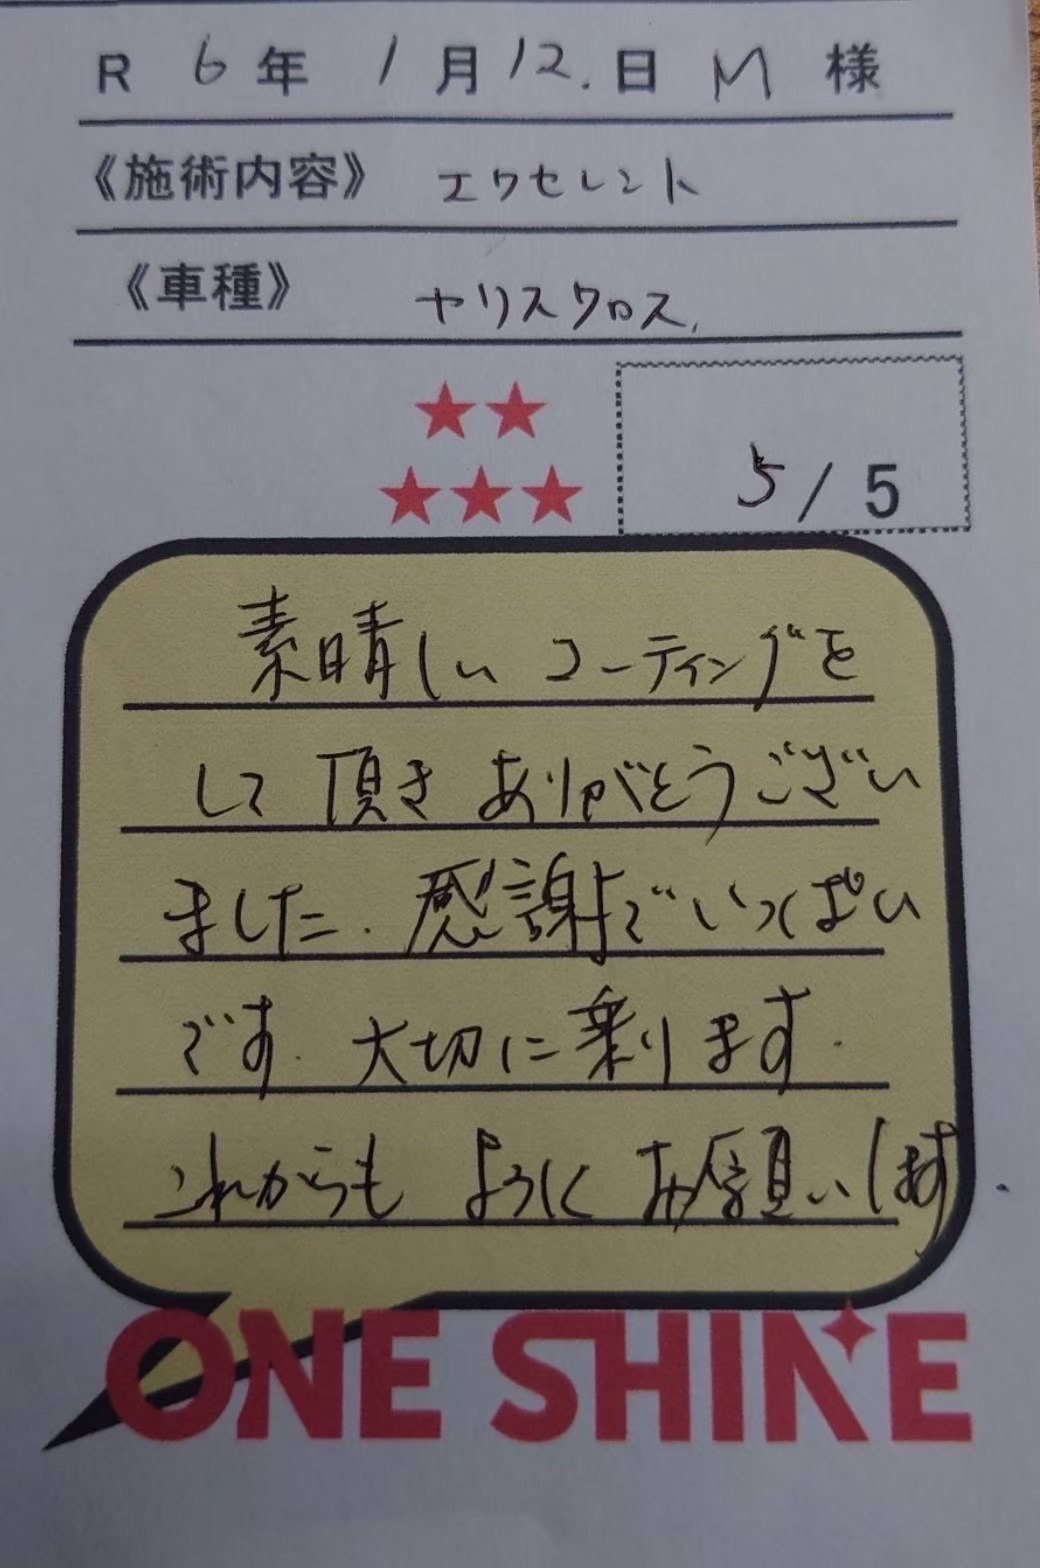 R 6年 1月12.日 M 様
《施術内容》 エクセレント
《車種》 ヤリスクロス.
5/5
素晴しい コーティングを
して 頂き ありがとうござい
ました. 感謝でいっぱい
です. 大切に乗ります.
これからも よろしく お願いします.
ONE SHINE